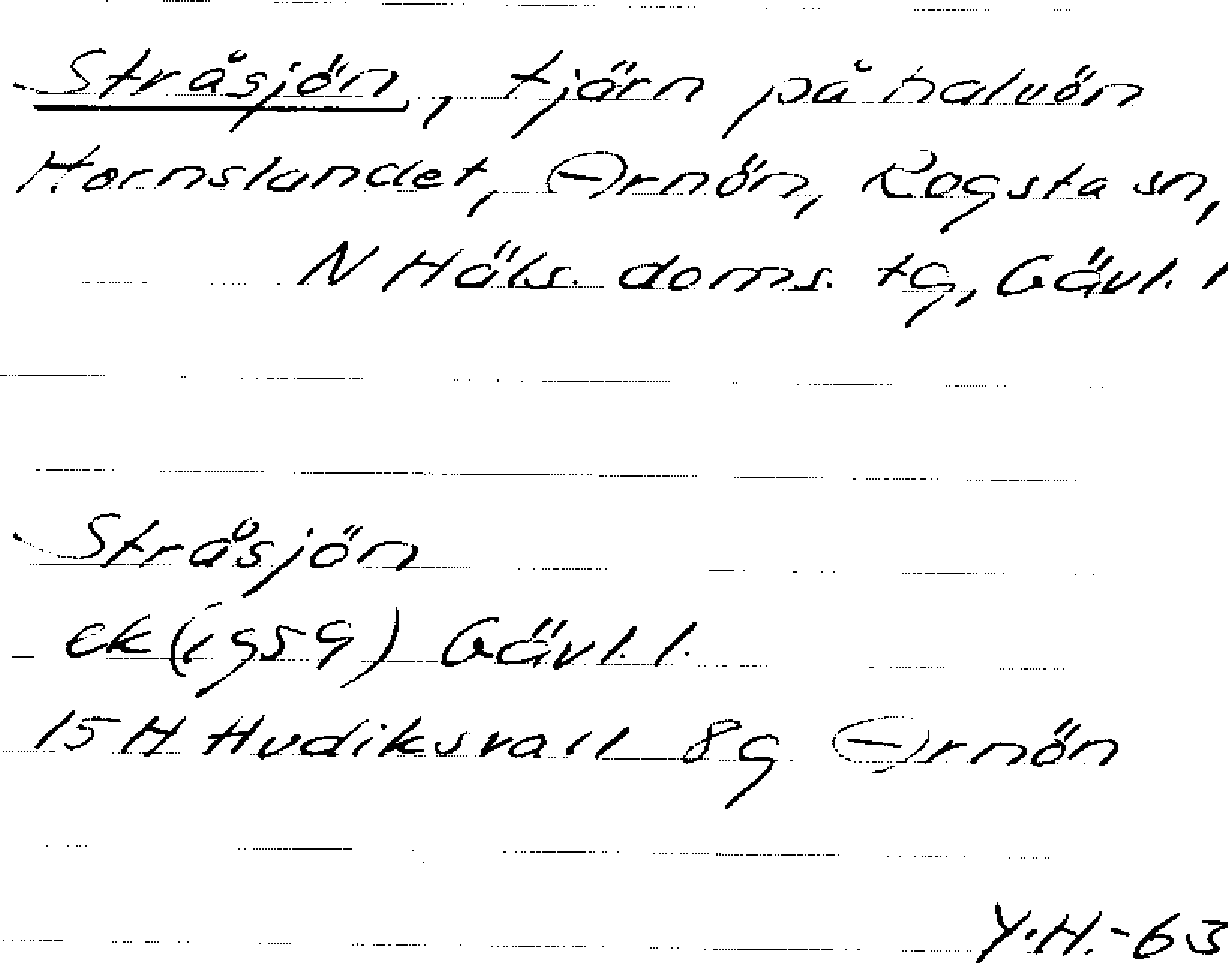 Stråsjön, tjärn på halvön
Hornslandet, Arnön, Rogsta sn,
N Häls. doms. tg, Gävl. l
Stråsjön
ek(1959) Gävl. l.
15 H Hudiksvall 8g Arnön
Y.H.-63